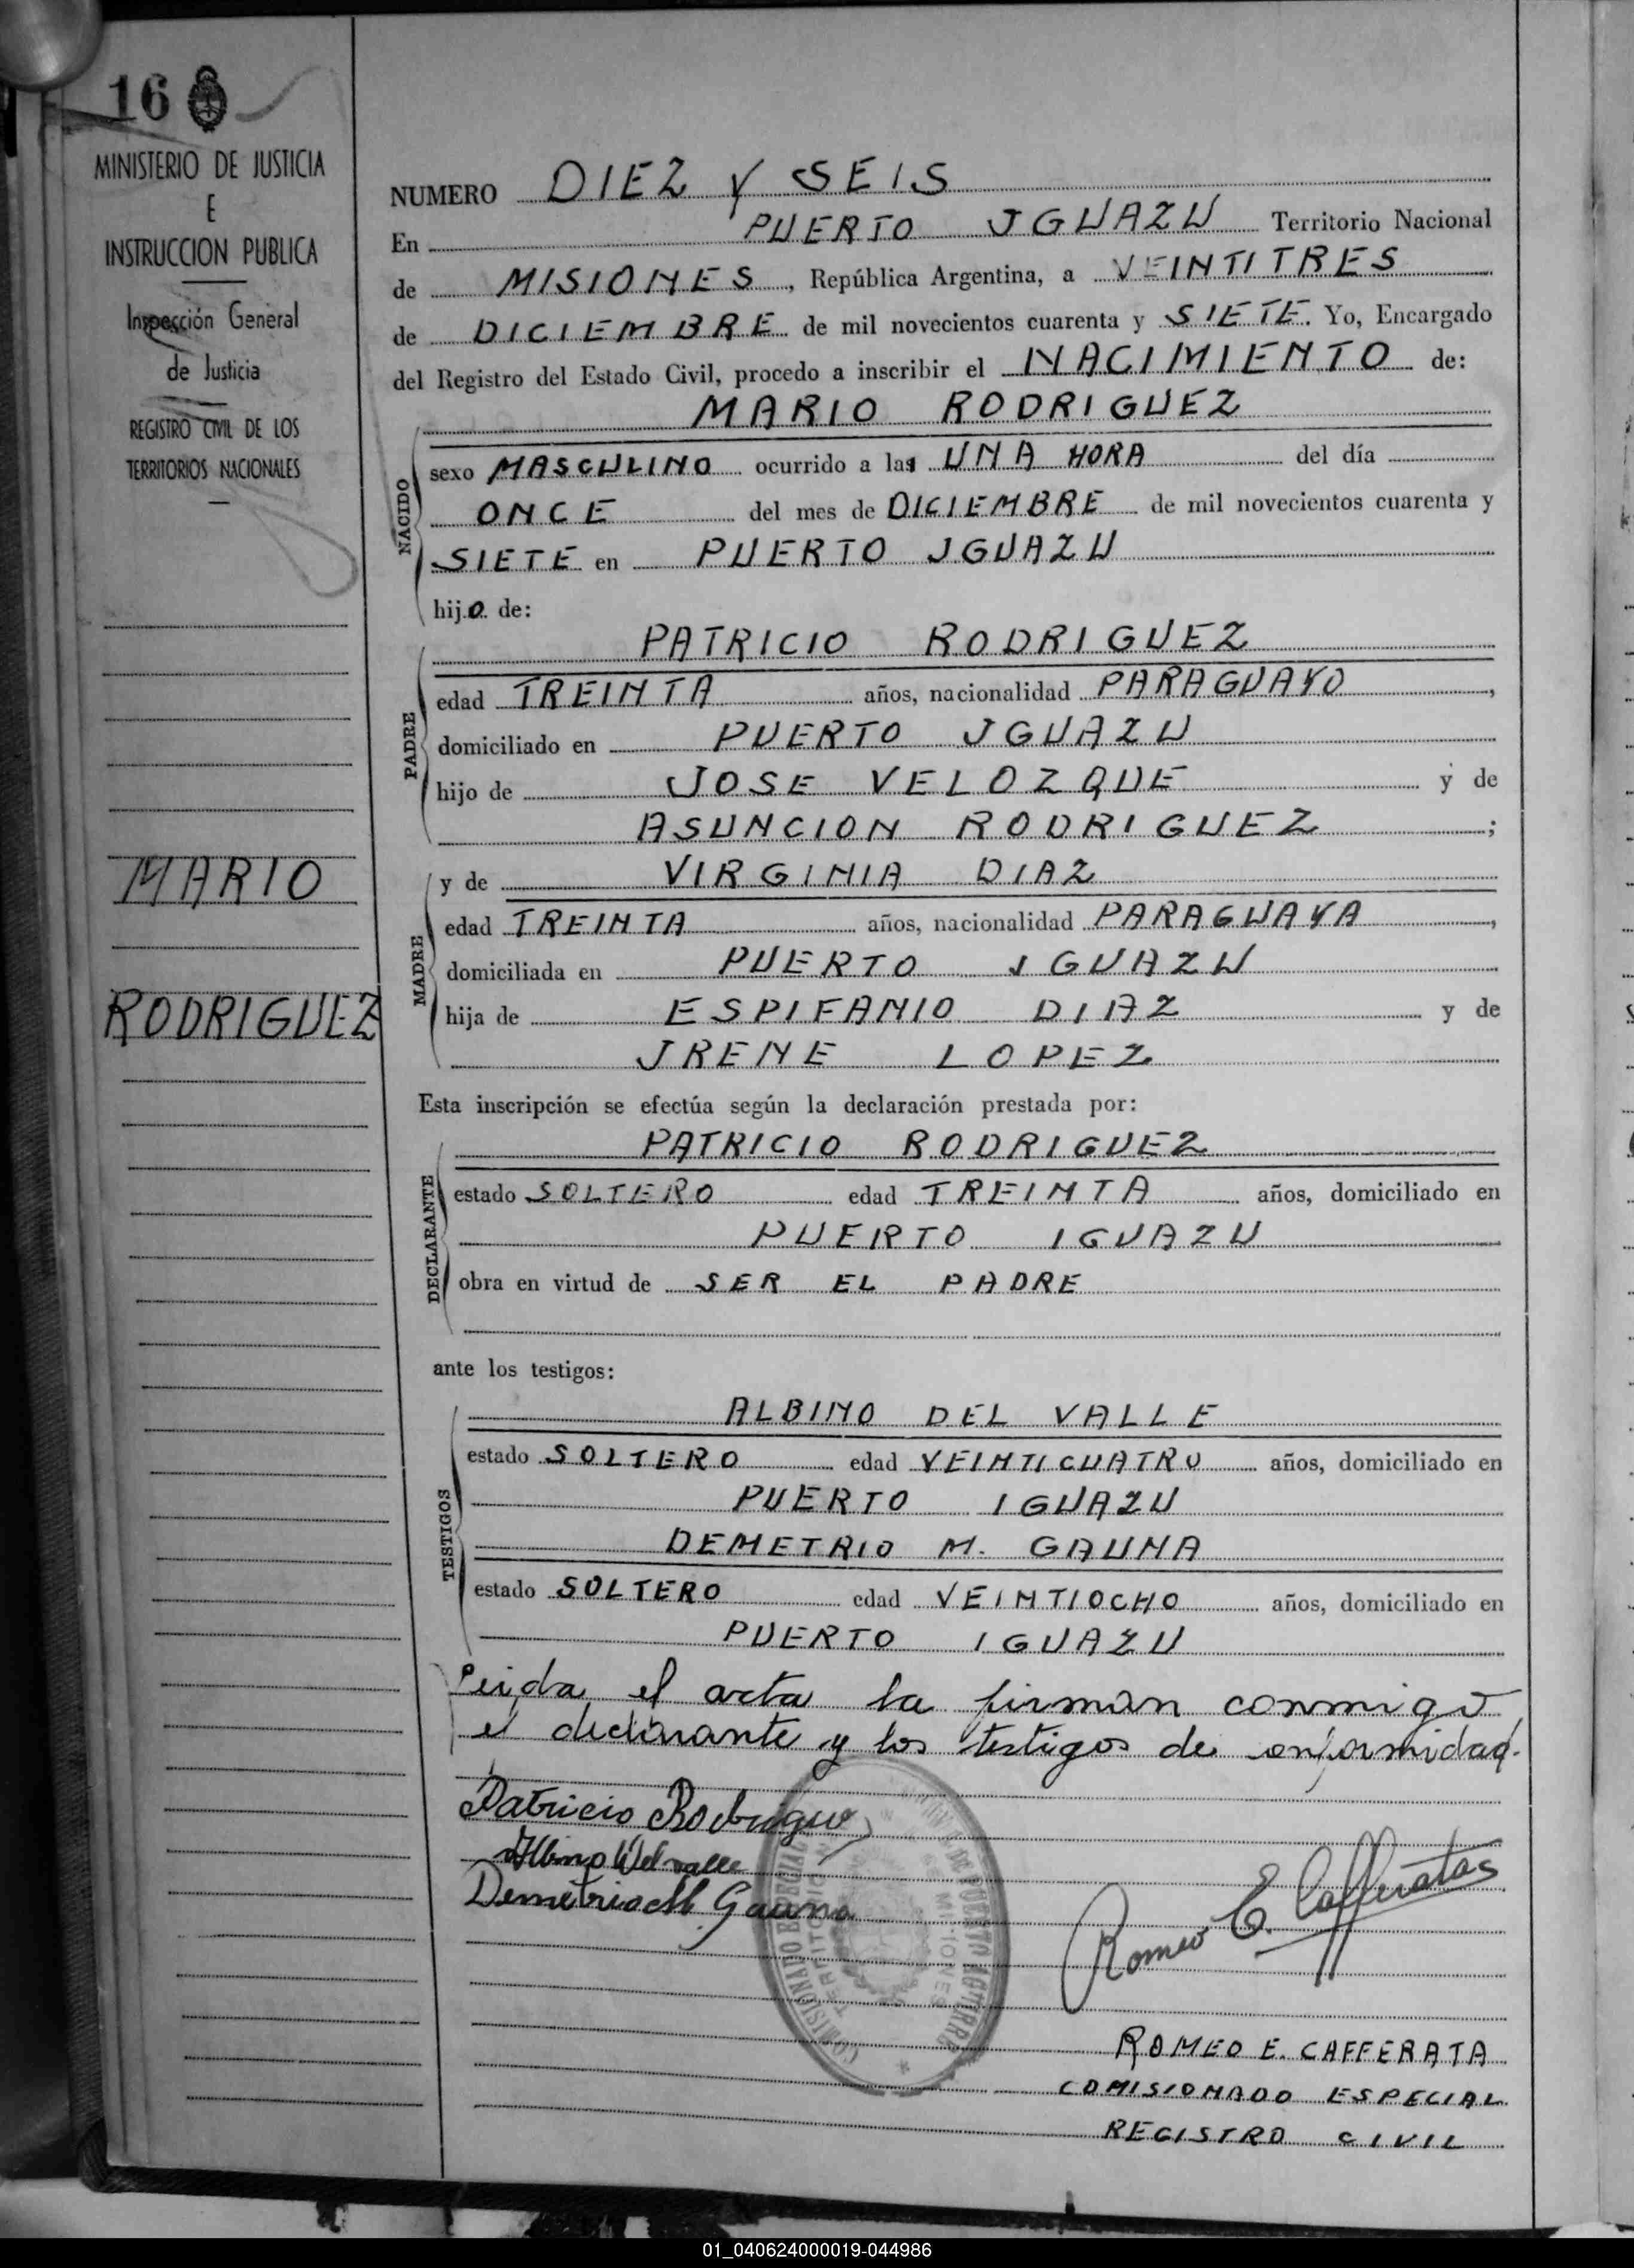 16
MINISTERIO DE JUSTICIA
E
INSTRUCCION PUBLICA
Inspección General
de Justicia
REGISTRO CIVIL DE LOS
TERRITORIOS NACIONALES
MARIO
RODRIGUEZ
NUMERO DIEZ Y SEIS
En PUERTO IGUAZU Territorio Nacional
de MISIONES, República Argentina, a VEINTITRES
de DICIEMBRE de mil novecientos cuarenta y SIETE. Yo, Encargado
del Registro del Estado Civil, procedo a inscribir el NACIMIENTO de:
MARIO RODRIGUEZ
NACIDO
sexo MASCULINO ocurrido a las UNA HORA del día
ONCE del mes de DICIEMBRE de mil novecientos cuarenta y
SIETE en PUERTO IGUAZU
hijo de:
PATRICIO RODRIGUEZ
PADRE
edad TREINTA años, nacionalidad PARAGUAYO,
domiciliado en PUERTO IGUAZU
hijo de JOSE VELOZQUE y de
ASUNCION RODRIGUEZ;
y de VIRGINIA DIAZ
MADRE
edad TREINTA años, nacionalidad PARAGUAYA,
domiciliada en PUERTO IGUAZU
hija de ESPIFANIO DIAZ y de
IRENE LOPEZ
Esta inscripción se efectúa según la declaración prestada por:
PATRICIO RODRIGUEZ
DECLARANTE
estado SOLTERO edad TREINTA años, domiciliado en
PUERTO IGUAZU
obra en virtud de SER EL PADRE
ante los testigos:
ALBINO DEL VALLE
TESTIGOS
estado SOLTERO edad VEINTICUATRO años, domiciliado en
PUERTO IGUAZU
DEMETRIO M. GAUNA
estado SOLTERO edad VEINTIOCHO años, domiciliado en
PUERTO IGUAZU
Leida el acta la firman conmigo
el declarante y los testigos de conformidad.
Patricio Rodriguez
Albino Del valle
Demetrio M Gauna
Romeo E. Cafferatas
COMISIONADO ESPECIAL
TERRITORIO
DE MISIONES
ROMEO E. CAFFERATA
COMISIONADO ESPECIAL
REGISTRO CIVIL
01_040624000019-044986